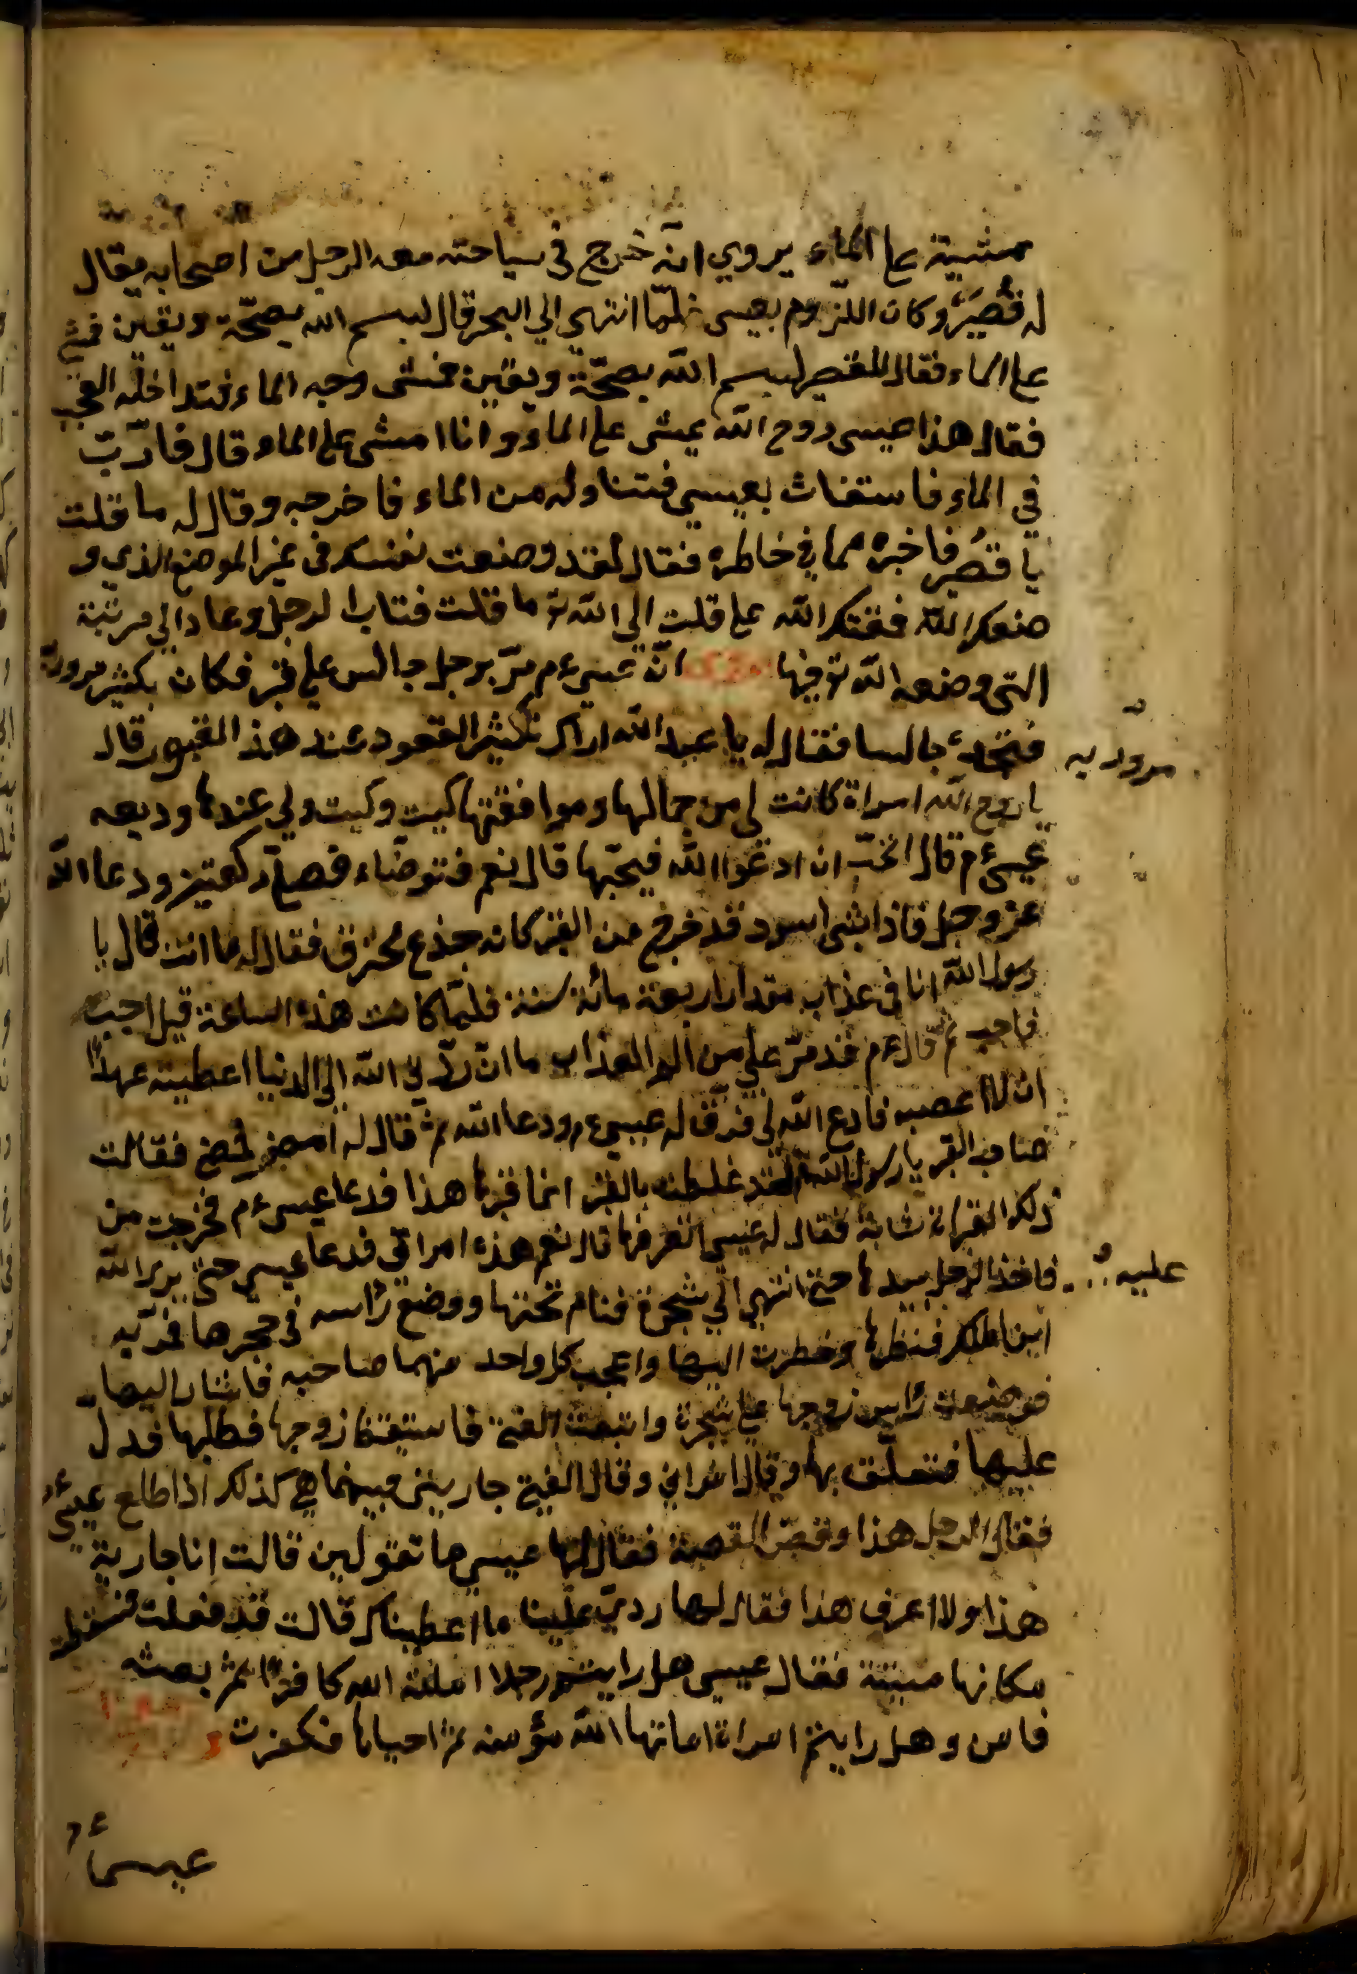 مشيه على الماء يروي انه خرج في سياحته معه الرجل من اصحابه يقال
له قصير وكان اللزوم بعيسى فلما انتهى الى البحر قال لبسم الله بصحة ويقين فمشى
على الماء فقال للقصير لبسم الله بصحة ويقين فمشى وجه الماء فتداخله العجب
فقال هذا عيسى روح الله يمشى على الماء وانا امشى على الماء قال فارتب
في الماء فاستغاث بعيسى فتناوله من الماء فاخرجه وقال له ما قلت
يا قصير فاخبره مما في خاطره فقال لقد وضعت نفسك في غير الموضع الذي و
ضعك الله فمقتك الله على قلت الى الله تو ما قلت فتاب الرجل وعاد الى مرتبته
التي وضعه الله تو فيها ان عيسى ءم مر برجل جالس على قبر فكان يكثير مروره
فتجده جالسا فقال له يا عبد الله اراك تكثير القعود عند هذ القبور قال
مروره به
يا روح الله امراة كانت لي من جمالها وموافقتها كيت وكيت ولي عندها وديعه
عيسى ءم قال اتحب ان ادعوا الله فيحيها قال نعم فتوضاء فصلى ركعتين ودعا الله
عز وجل فاذا بشى اسود قد خرج من القبر كانه جذع محترق فقال له ما انت قال يا
رسول الله انا في عذاب مقدار اربعة مائة سنة فلما كانت هذه الساعة قيل اجب
فاجب ثم قال ءم قد مر علي من الم العذاب ما ان رد لي الله الى الدنيا اعطيته عهدا
ان لا اعصيه فادع الله لي فرق له عيسى ءم ودعا الله ثم قال له امض فمضى فقالت
صاحب القبر يا رسول الله لقد غلطت بالقبر انما قبرها هذا فدعا عيسى ءم فخرجت من
ذلك القبر امراة شابة فقال له عيسى اتعرفها قال نعم هذه امراتي فدعا عيسى حتى يرد الله
عليه
فاخذ الرجل بيدها حتى انتهى الى شجرة فنام تحتها ووضع راسه في حجرها فمر به
ابن الملك فنظرها ونظرت اليها واعجب كل واحد منهما صاحبه فاشار اليها
فوضعت راس زوجها على شجرة واتبعت الفتى فاستيقظ زوجها فطلبها فدل
عليها فتعلق بها وقال امراتي وقال الفتى جاريتي فبينما هي كذلك اذا طلع عيسى
فقال الرجل هذا وقص القصة فقال لها عيسى ما تقولين قالت انا جارية
هذا ولا اعرف هذا فقال لها ردي علينا ما اعطيناك قالت قد فعلت فسقطت
مكانها ميتة فقال عيسى هل رايتم رجلا اماته الله كافرا ثم بعثه
فامن وهل رايتم امراة اماتها الله مؤمنه ثم احياها فكفرت
عيسى ءم